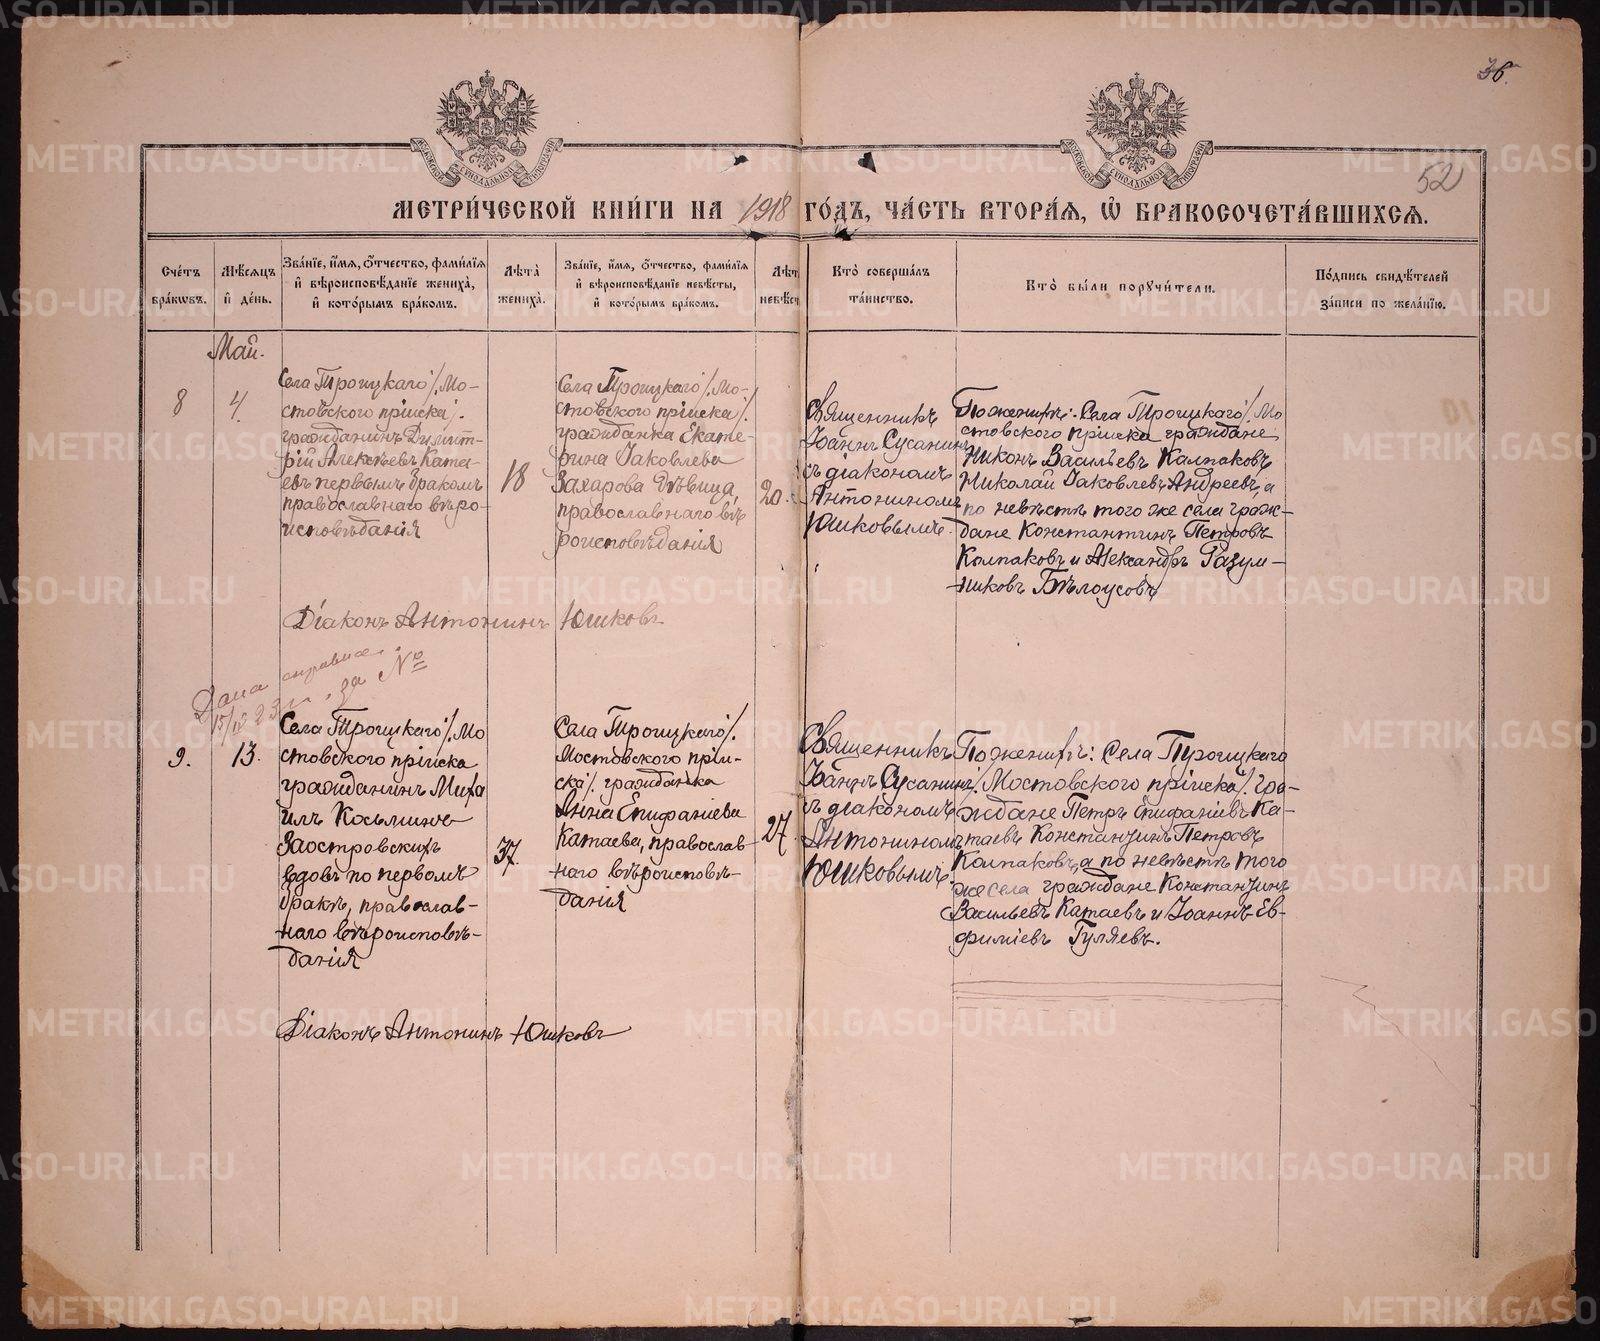 36.
52
МЕТРИ́ЧЕСКОЙ КНИ́ГИ НА 1918 ГО́ДЪ, ЧА́СТЬ ВТОРА́Я, Ѽ БРАКОСОЧЕТА́ВШИХСЯ.
Сче́тъ бра́кѡвъ.
Мѣ́сяцъ й де́нь.
Зва́нїе, и́мя, о́тчество, фами́лїя й вѣроисповѣ́данїе жениха̀, й кото́рымъ бра́комъ.
Лѣта̀ жениха̀.
Зва́нїе, и́мя, о́тчество, фами́лїя й вѣроисповѣ́данїе невѣ́сты, й кото́рымъ бра́комъ.
Лѣта̀ невѣ́ст
Кто̀ соверша́лъ та́инство.
Кто̀ бы́ли поручи́тели.
По́дпись свидѣ́телей за́писи по жела́нїю.
Май.
8
4.
Села Троицкаго /. Мо-
стовского пріиска /.
гражданинъ Димит-
рій Алексѣевъ Ката-
евъ первымъ бракомъ
православнаго вѣро-
исповѣданія
18
Села Троицкаго /. Мо-
стовского пріиска /.
гражданка Екате-
рина Іаковлева
Захарова дѣвица,
православнаго вѣ
роисповѣданія
20.
Священникъ
Іоаннъ Сусанинъ
съ діакономъ
Антониномъ
Юшковымъ.
По женихѣ: Села Троицкаго /. Мо
стовского пріиска граждане
Никонъ Васильевъ Колпаковъ
Николай Іаковлевъ Андреевъ, а
по невѣстѣ того же села граж-
дане Константинъ Петровъ
Колпаковъ и Александръ Разум-
никовъ Бѣлоусовъ
Діаконъ Антонинъ Юшковъ
Дана справка
за №
9.
13.
Села Троицкаго /. Мо
стовского пріиска
гражданинъ Миха
илъ Косьминъ
Заостровскихъ
вдовъ по первомъ
бракѣ, православ-
наго вѣроисповѣ-
данія
37.
Села Троицкаго /.
Мостовского прiи-
ска /. гражданка
Анна Епифаніева
Катаева, православ-
наго вѣроисповѣ-
данія
27.
Священникъ
Іоаннъ Сусанинъ
съ діакономъ
Антониномъ
Юшковымъ.
По женихѣ: Села Троицкаго
/. Мостовского пріиска /. гра-
ждане Петръ Епифаніевъ Ка-
таевъ Константинъ Петровъ
Колпаковъ, а по невѣстѣ того
же села граждане Константинъ
Васильевъ Катаевъ и Іоаннъ Ев-
фиміевъ Гуляевъ.
Діаконъ Антонинъ Юшковъ
METRIKI.GASO-URAL.RU